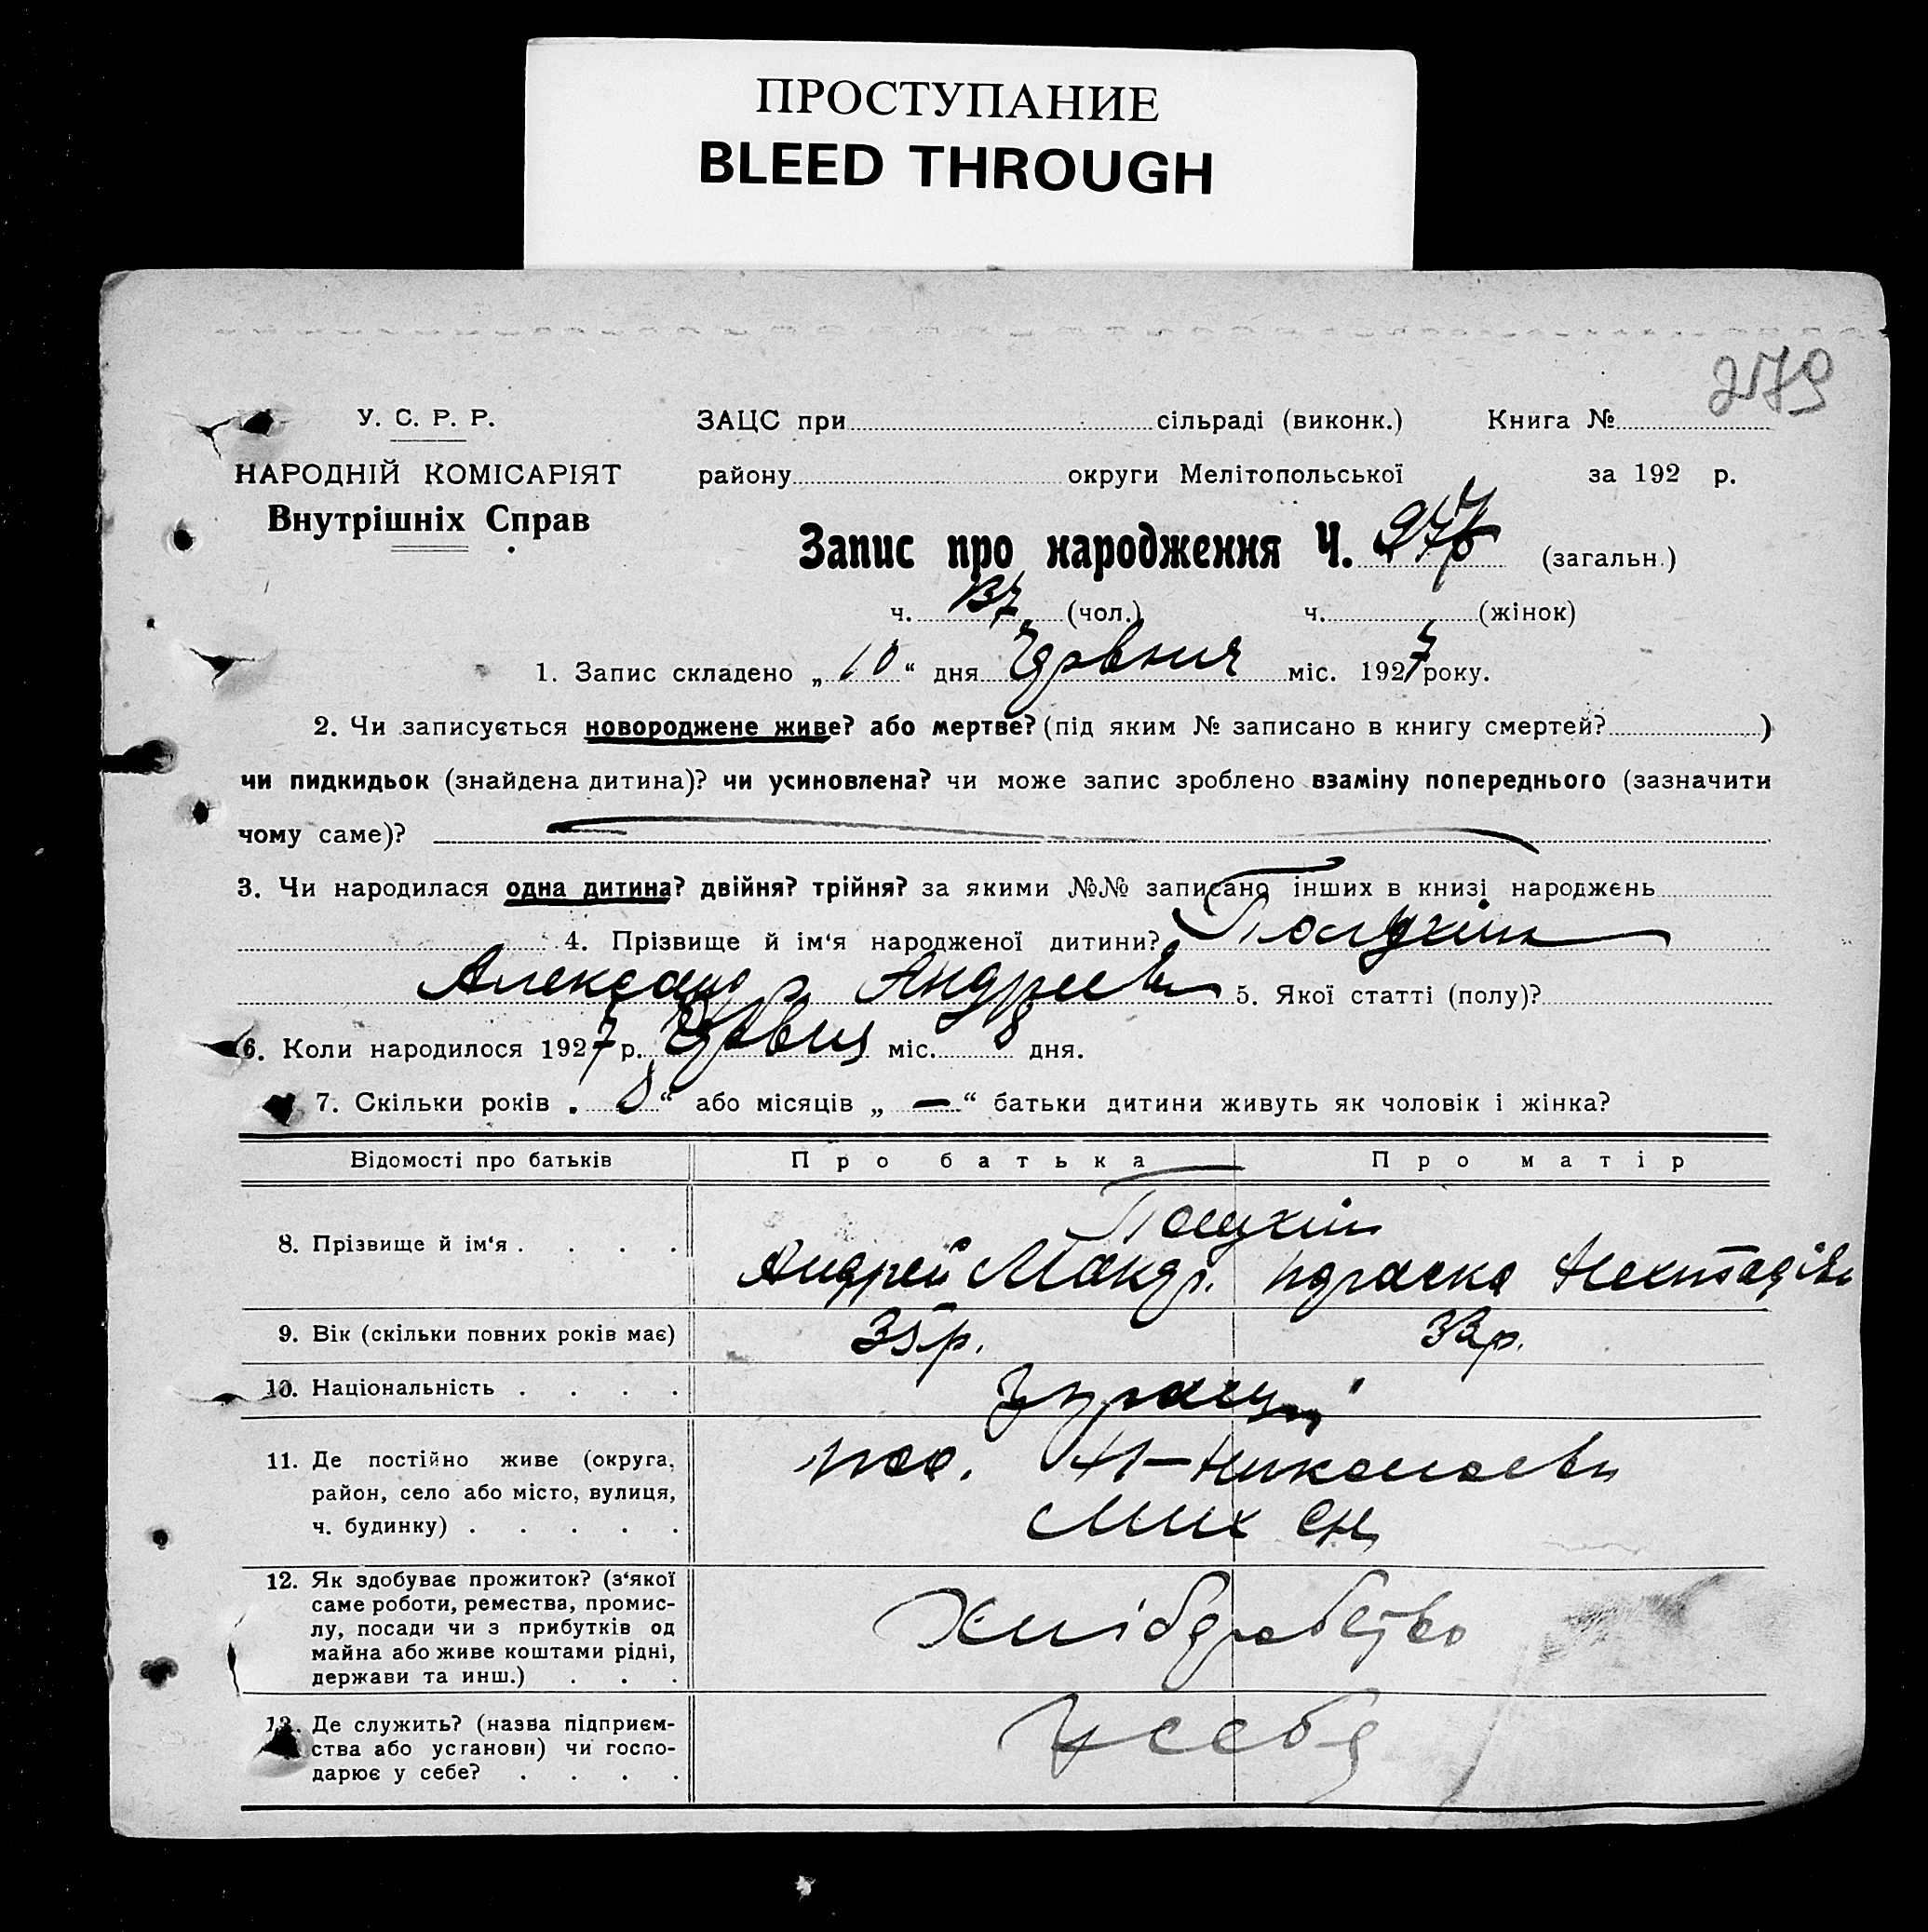 ПРОСТУПАНИЕ
BLEED THROUGH
279
У. С. Р. Р.
НАРОДНІЙ КОМІСАРІЯТ
Внутрішніх Справ
ЗАЦС при сільраді (виконк.) Книга №
району округи Мелітопольської за 192 р.
Запис про народження Ч. (загальн.)
ч. 137 (чол.) ч. (жінок)
1. Запис складено „ 10 “ дня Червня міс. 1927 року.
2. Чи записується новороджене живе? або мертве? (під яким № записано в книгу смертей? )
чи пидкидьок (знайдена дитина)? чи усиновлена? чи може запис зроблено взаміну попереднього (зазначити
чому саме)?
3. Чи народилася одна дитина? двійня? трійня? за якими №№ записано інших в книзі народжень
4. Прізвище й ім‘я народженої дитини?
Александр Андреев 5. Якої статті (полу)?
6. Коли народилося 1927 р. Червня міс. 8 дня.
7. Скільки років „ 8 “ або місяців „ — “ батьки дитини живуть як чоловік і жінка?
Відомості про батьків Про батька Про матір
8. Прізвище й ім‘я . . . .
Андрей
9. Вік (скільки повних років має) 35 р. 33 р.
10. Національність . . . .
11. Де постійно живе (округа,
район, село або місто, вулиця,
ч. будинку) . . . . .
Н-Николаевк
12. Як здобуває прожиток? (з‘якої
саме роботи, ремества, промис-
лу, посади чи з прибутків од
майна або живе коштами рідні,
держави та инш.) . . .
Хлібдробство
13. Де служить? (назва підприєм-
ства або установи) чи госпо-
дарює у себе? . . . .
У себе